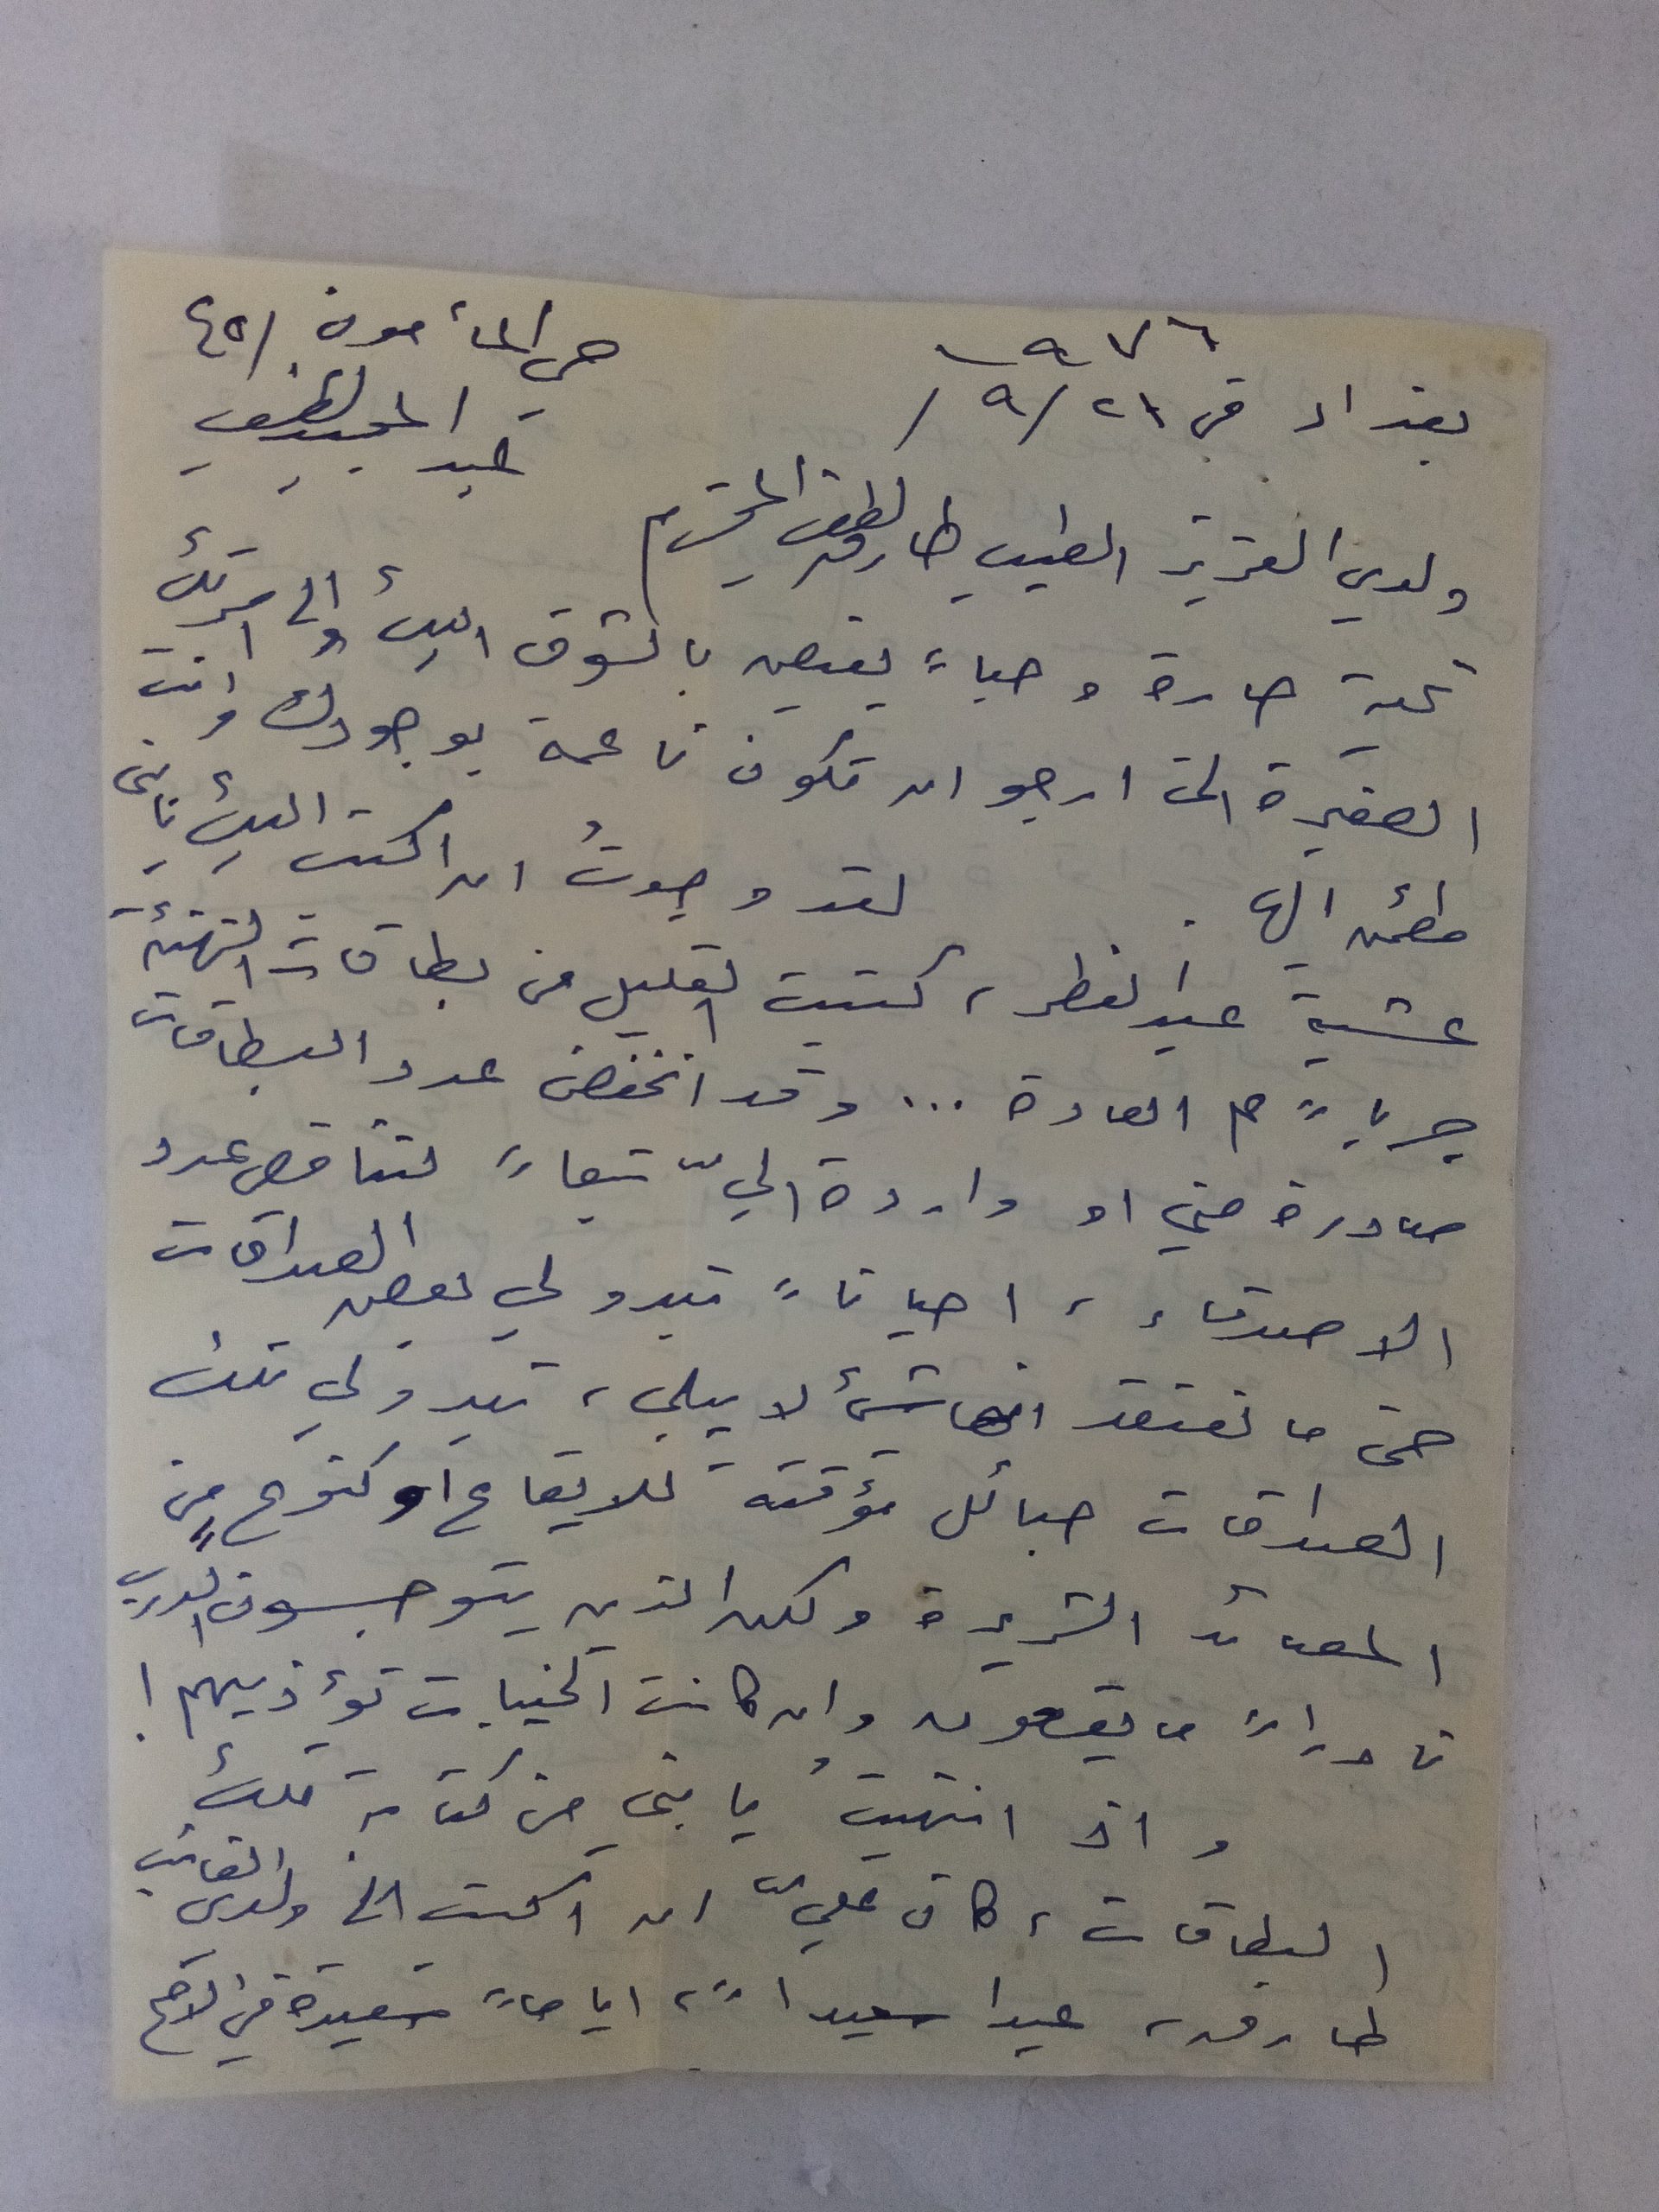 حي المأمون / ٤٥
عبد المجيد لطفي
١٩٧٦
بغداد في ٢١ / ٩ /
ولدي العزيز الطيب طارق لطفي المحترم
تحية حارة وحباً يفيض بالشوق اليك والى اسرتك
الصغيرة التي ارجو ان تكون ناعمة بوجودك وانت
مطمئن اليها . لقد وجدتُ ان اكتب اليك يا بني
عشية عيد الفطر ، كتبت القليل من بطاقات التهنئة
جرياً م العادة ... وقد انخفض عدد البطاقات
صادرة مني او واردة اليّ تبعاً لتناقص عدد
الاصدقاء ، احياناً تبدو لي بعض الصداقات
حتى ما نعتقد انها شئ لا يبلى ، تبدو لي تلك
الصداقات حبائل مؤقتة للايقاع او كنوع من
المصائد الشريرة ولكن الذين يتوجسون الدرب
نادراً ما يقعون وان كانت الخيبات تؤذيهم !
واذ انتهيتُ يا بني من كتابة تلك
البطاقات ، كان عليّ ان اكتب الى ولدي الغائب
طارق ، عيدا سعيداً ، اياماً سعيدة في